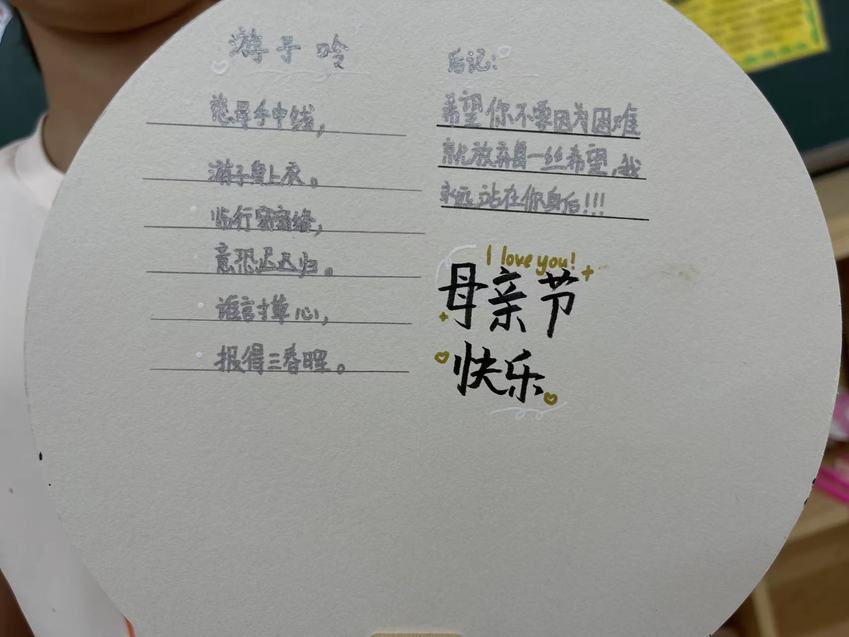 游子吟
慈母手中线，
游子身上衣。
临行密密缝，
意恐迟迟归。
谁言寸草心，
报得三春晖。
后记：
希望你不要因为困难
就放弃每一丝希望，我
永远站在你身后!!!
I love you!
母亲节
快乐